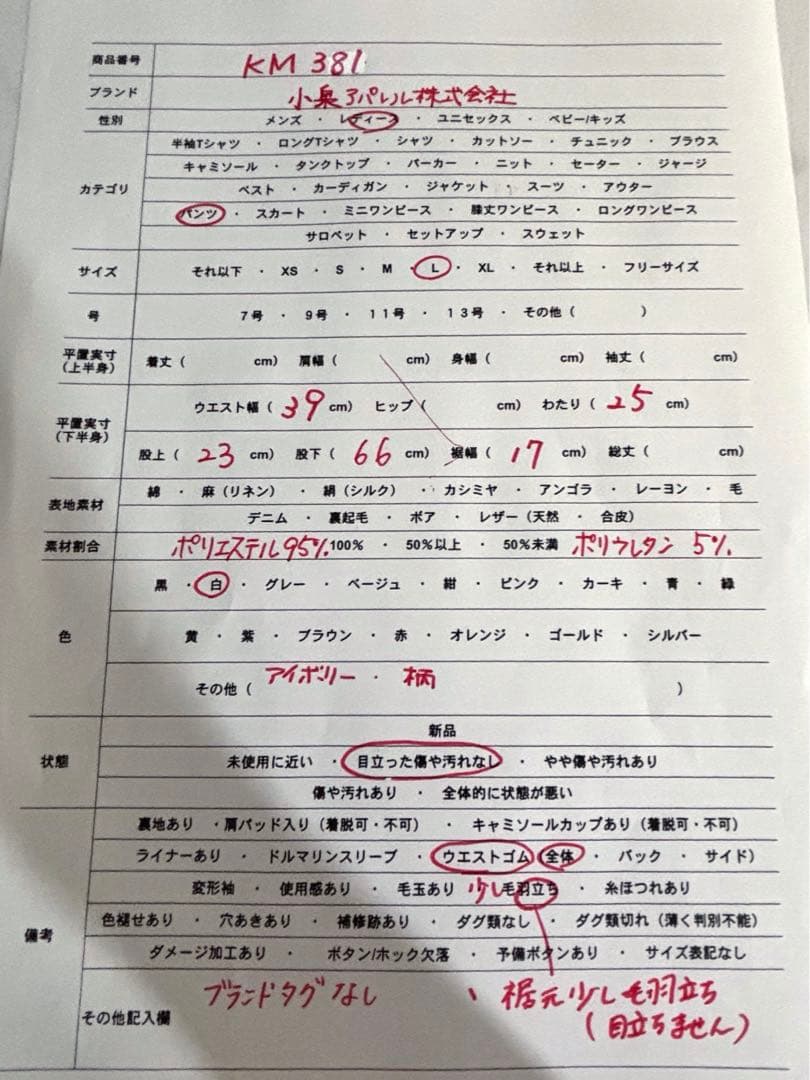 商品番号 KM 381
ブランド 小泉アパレル株式会社
性別 メンズ ・ レディース ・ ユニセックス ・ ベビー/キッズ
半袖Tシャツ ・ ロングTシャツ ・ シャツ ・ カットソー ・ チュニック ・ ブラウス
キャミソール ・ タンクトップ ・ パーカー ・ ニット ・ セーター ・ ジャージ
カテゴリ ベスト ・ カーディガン ・ ジャケット ・ スーツ ・ アウター
パンツ ・ スカート ・ ミニワンピース ・ 膝丈ワンピース ・ ロングワンピース
サロペット ・ セットアップ ・ スウェット
サイズ それ以下 ・ XS ・ S ・ M ・ L ・ XL ・ それ以上 ・ フリーサイズ
号 7号 ・ 9号 ・ 11号 ・ 13号 ・ その他 ( )
平置実寸 (上半身) 着丈 ( cm) 肩幅 ( cm) 身幅 ( cm) 袖丈 ( cm)
平置実寸 (下半身) ウエスト幅 ( 39 cm) ヒップ ( cm) わたり ( 25 cm)
股上 ( 23 cm) 股下 ( 66 cm) 裾幅 ( 17 cm) 総丈 ( cm)
表地素材 綿 ・ 麻 (リネン) ・ 絹 (シルク) ・ カシミヤ ・ アンゴラ ・ レーヨン ・ 毛
デニム ・ 裏起毛 ・ ボア ・ レザー (天然 ・ 合皮)
素材割合 ポリエステル95% 100% ・ 50%以上 ・ 50%未満 ポリウレタン 5%
黒 ・ 白 ・ グレー ・ ベージュ ・ 紺 ・ ピンク ・ カーキ ・ 青 ・ 緑
色 黄 ・ 紫 ・ ブラウン ・ 赤 ・ オレンジ ・ ゴールド ・ シルバー
その他 ( アイボリー ・ 柄 )
新品
状態 未使用に近い ・ 目立った傷や汚れなし ・ やや傷や汚れあり
傷や汚れあり ・ 全体的に状態が悪い
裏地あり ・肩パッド入り (着脱可・不可) ・ キャミソールカップあり (着脱可・不可)
ライナーあり ・ ドルマリンスリーブ ・ ウエストゴム (全体 ・ バック ・ サイド)
変形袖 ・ 使用感あり ・ 毛玉あり 少し毛羽立ち ・ 糸ほつれあり
備考 色褪せあり ・ 穴あきあり ・ 補修跡あり ・ ダグ類なし ・ ダグ類切れ (薄く判別不能)
ダメージ加工あり ・ ボタン/ホック欠落 ・ 予備ボタンあり ・ サイズ表記なし
その他記入欄 ブランドタグなし 、 裾元少し毛羽立ち
(目立ちません)